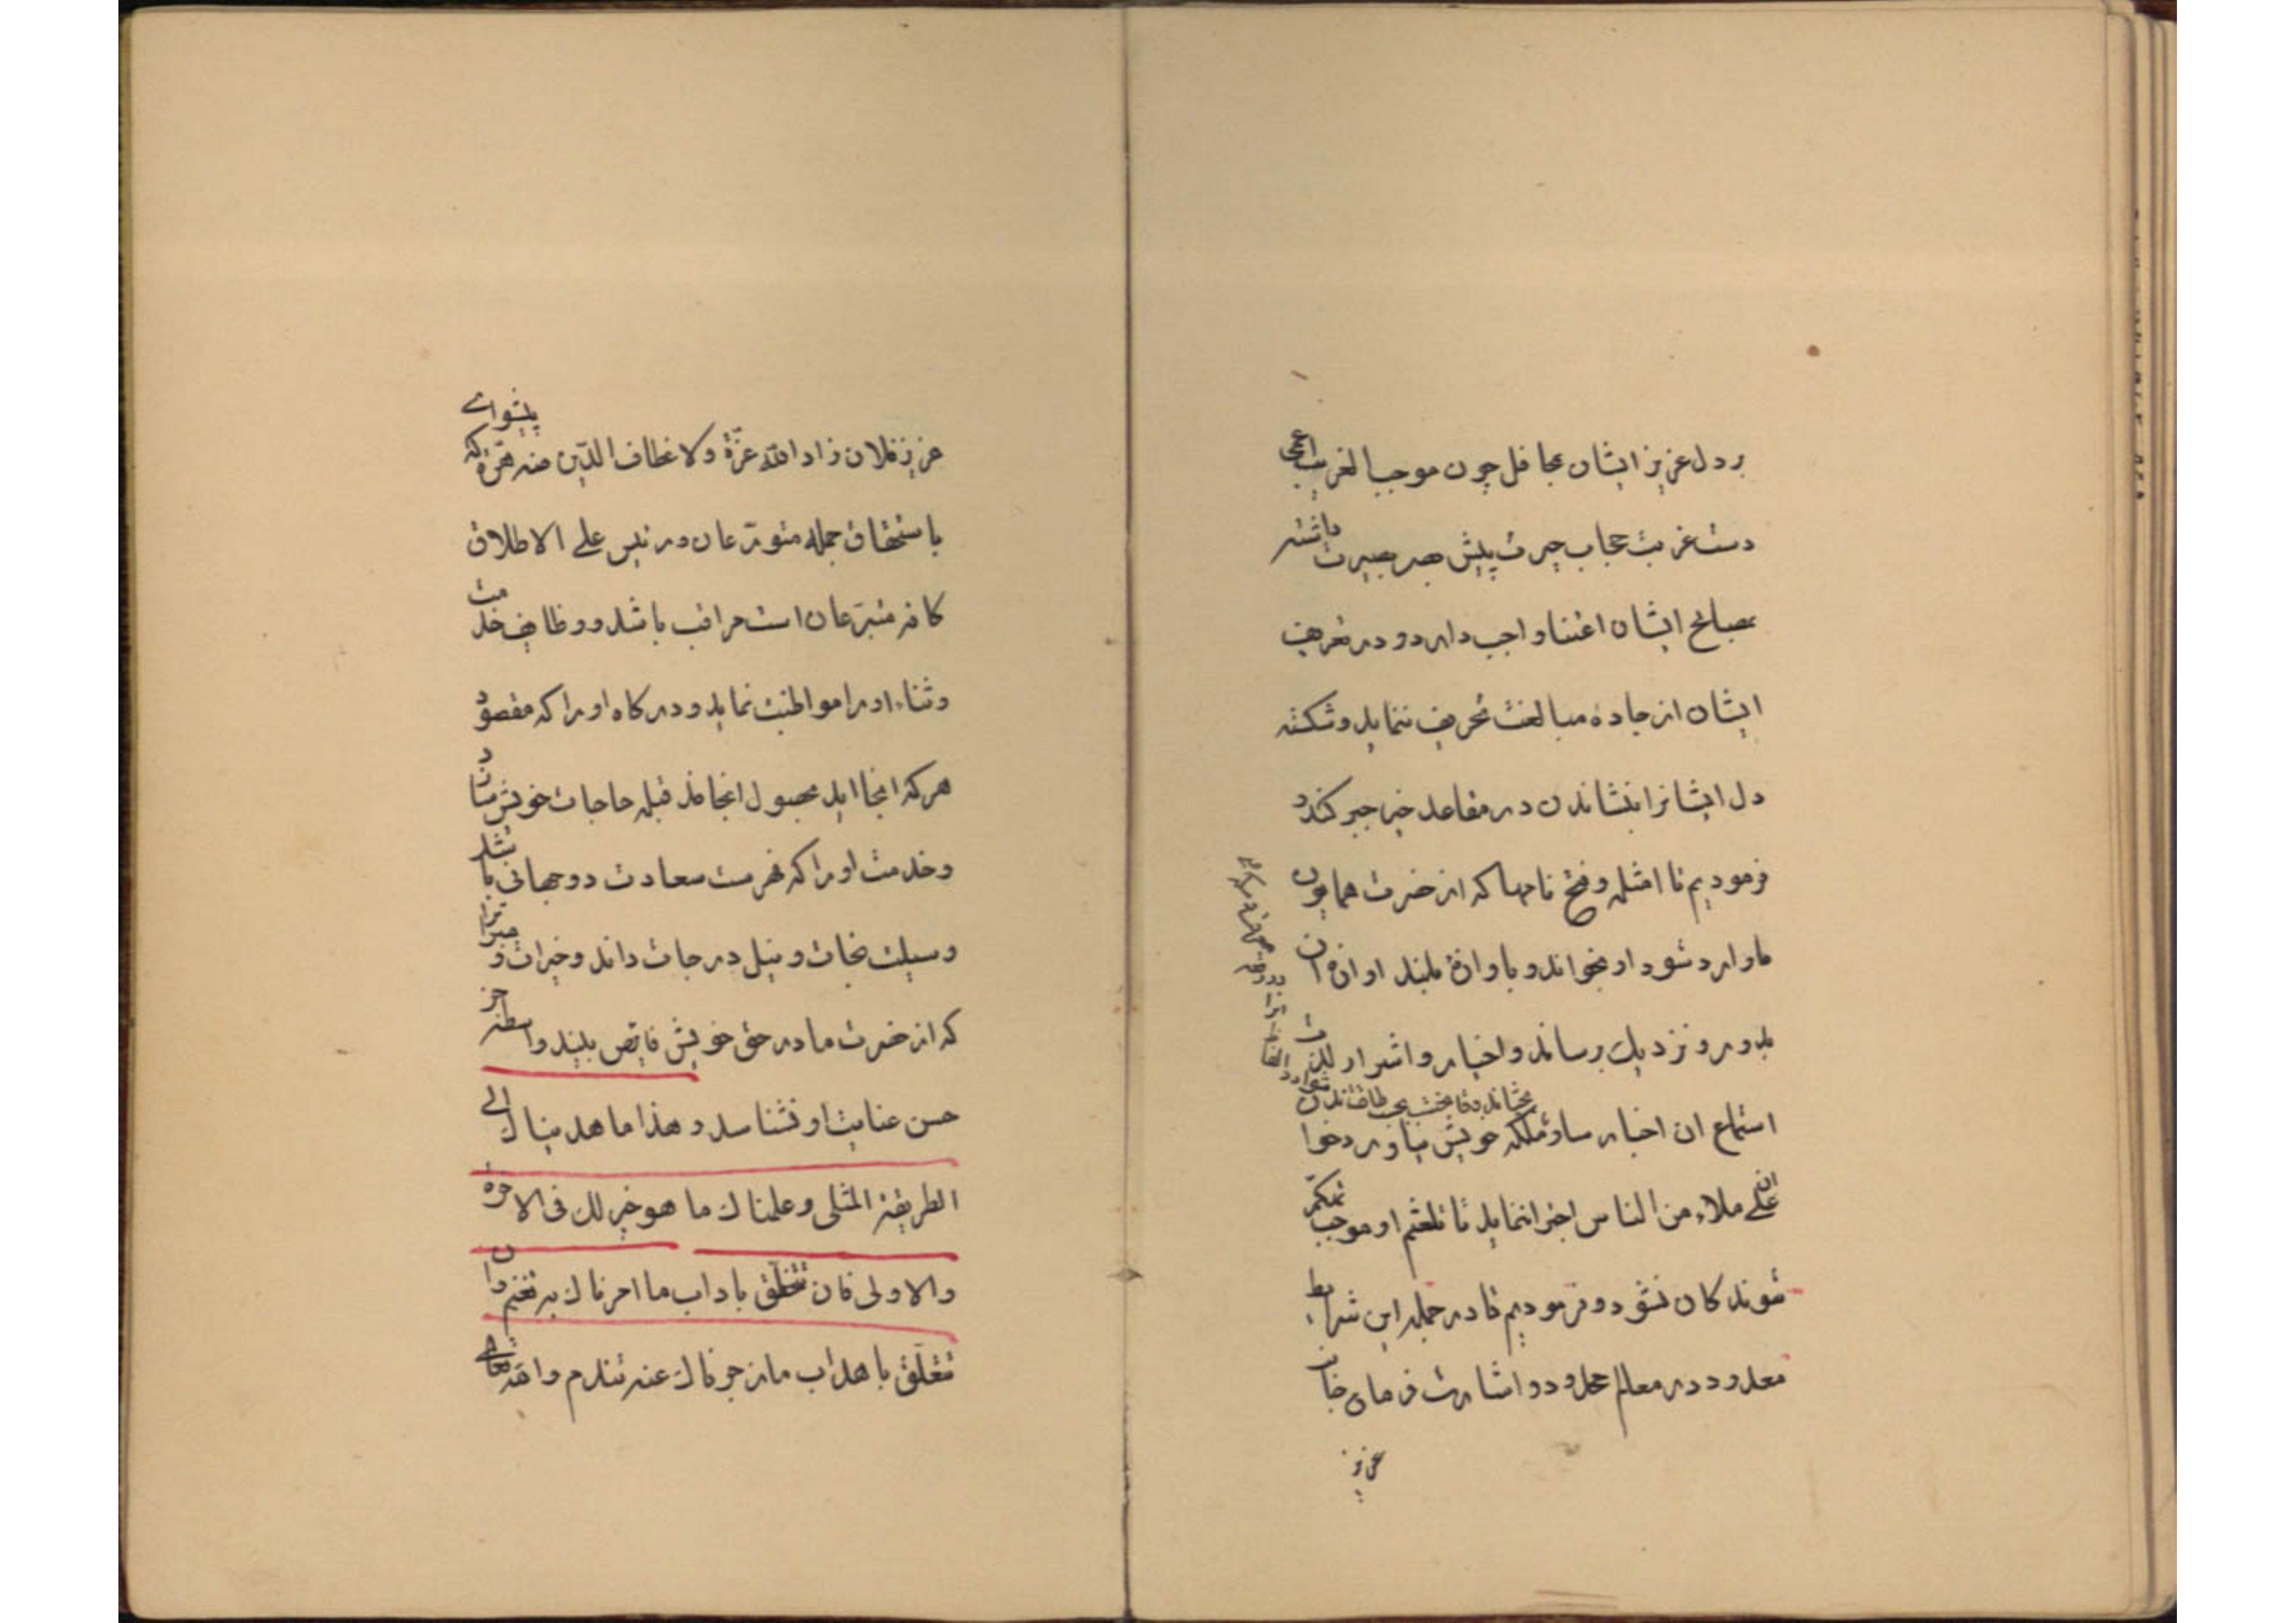 بر دل عزیز ایشان محافل چون موجب الغریب اعمی
دست غربت حجاب حیرت پیش بصر بصیرت داشته
بمصالح ایشان اعتنا واجب دارد و در تعریف
ایشان از جاده مبالغت تحریف ننماید و شکسته
دل ایشانرا بنشاندن در مقاعد خیر جبر کند و
فرمودیم تا امثله و فتح نامها که از حضرت همایون
ما وارد شود او بخواند و باوازۀ بلند اوازۀ ان
بدور و نزدیک برساند و اخیار و اشرار را لذت
استماع ان اخبار سار و ملکه خویش بیاورد خوا
علی ملاء من الناس اجرا ننماید تا تلعثم او موجب
شوندکان نشود و فرمودیم تا در جمله این شرایط
معدود در معالم محدود و اشارت فرمای جانب
عزیز
عزیز فلان زاد الله عزة ولاعطاف الدین منه هزة که پیشوای
باستحقاق جمله متورعان و رئیس علی الاطلاق
کافه متبرعان است مراقب باشد و وظایف خدمت
و ثناء او را مواظبت نماید و درکاه او را که مقصود
هرکه انجا اید محصول انجا ماند قبله حاجات خویش سازد
و خدمت او را که فهرست سعادت دوجهانی باشد
وسیلت نجات و نیل درجات داند و خیرات و
که از حضرت ما در حق خویش فایض بیند واسطه جز
حسن عنایت او نشناسد و هذا ما هدیناک الی
الطریقة المثلی و علمناک ما هو خیر لک فی الاخرة
والاولی فان تتخلق باداب ما امرناک به تغنم وان
تتعلق باهداب ما زجرناک عنه تندم والله تعالی